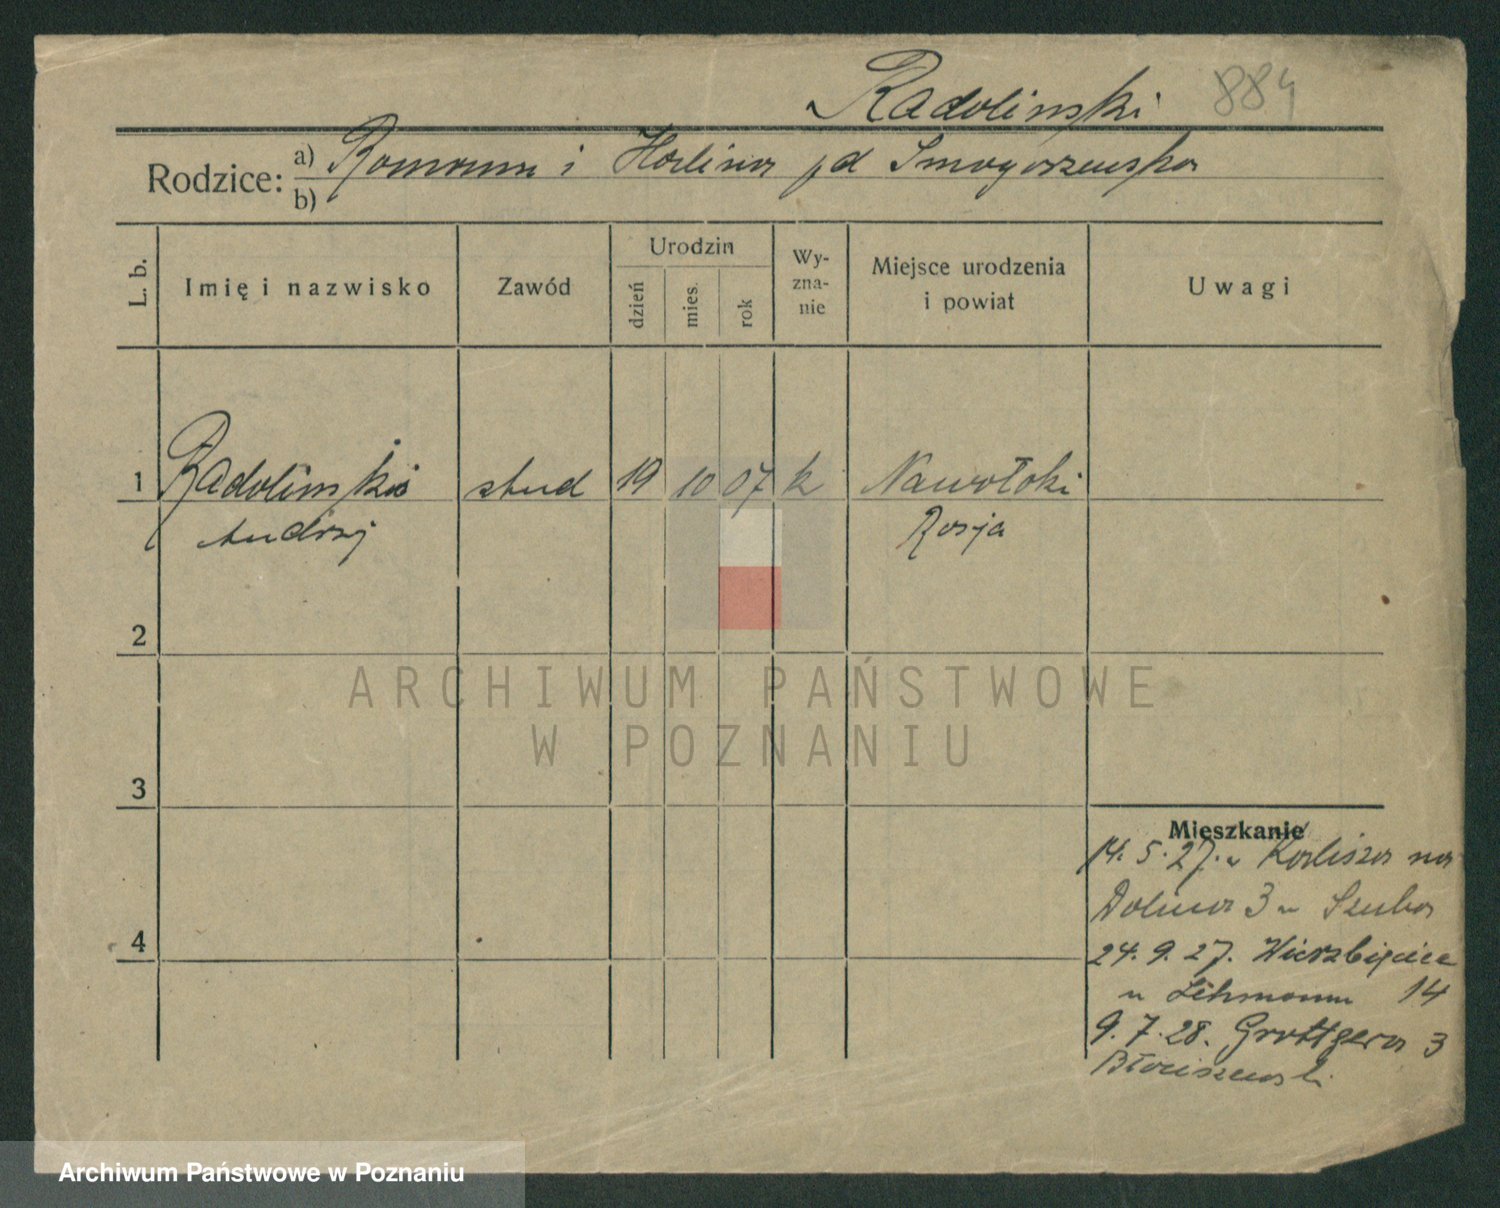 Radolinski 884
Rodzice: a) Roman i Halina pd Smogorzewska
b)
L. b.
Imię i nazwisko
Zawód
Urodzin
dzień
mies.
rok
Wy-
zna-
nie
Miejsce urodzenia
i powiat
Uwagi
1 Radolinski stud 19 10 07 k Nawołoki
Andrzej Rosja
2
3
4
Mieszkanie
14. 5. 27. Kalisza na
Dolina 3 u Szuba
24. 9. 27. Wierzbięcice
u Lehmann 14
9. 7. 28. Grottgera 3
Błociszewski
ARCHIWUM PAŃSTWOWE
W POZNANIU
Archiwum Państwowe w Poznaniu